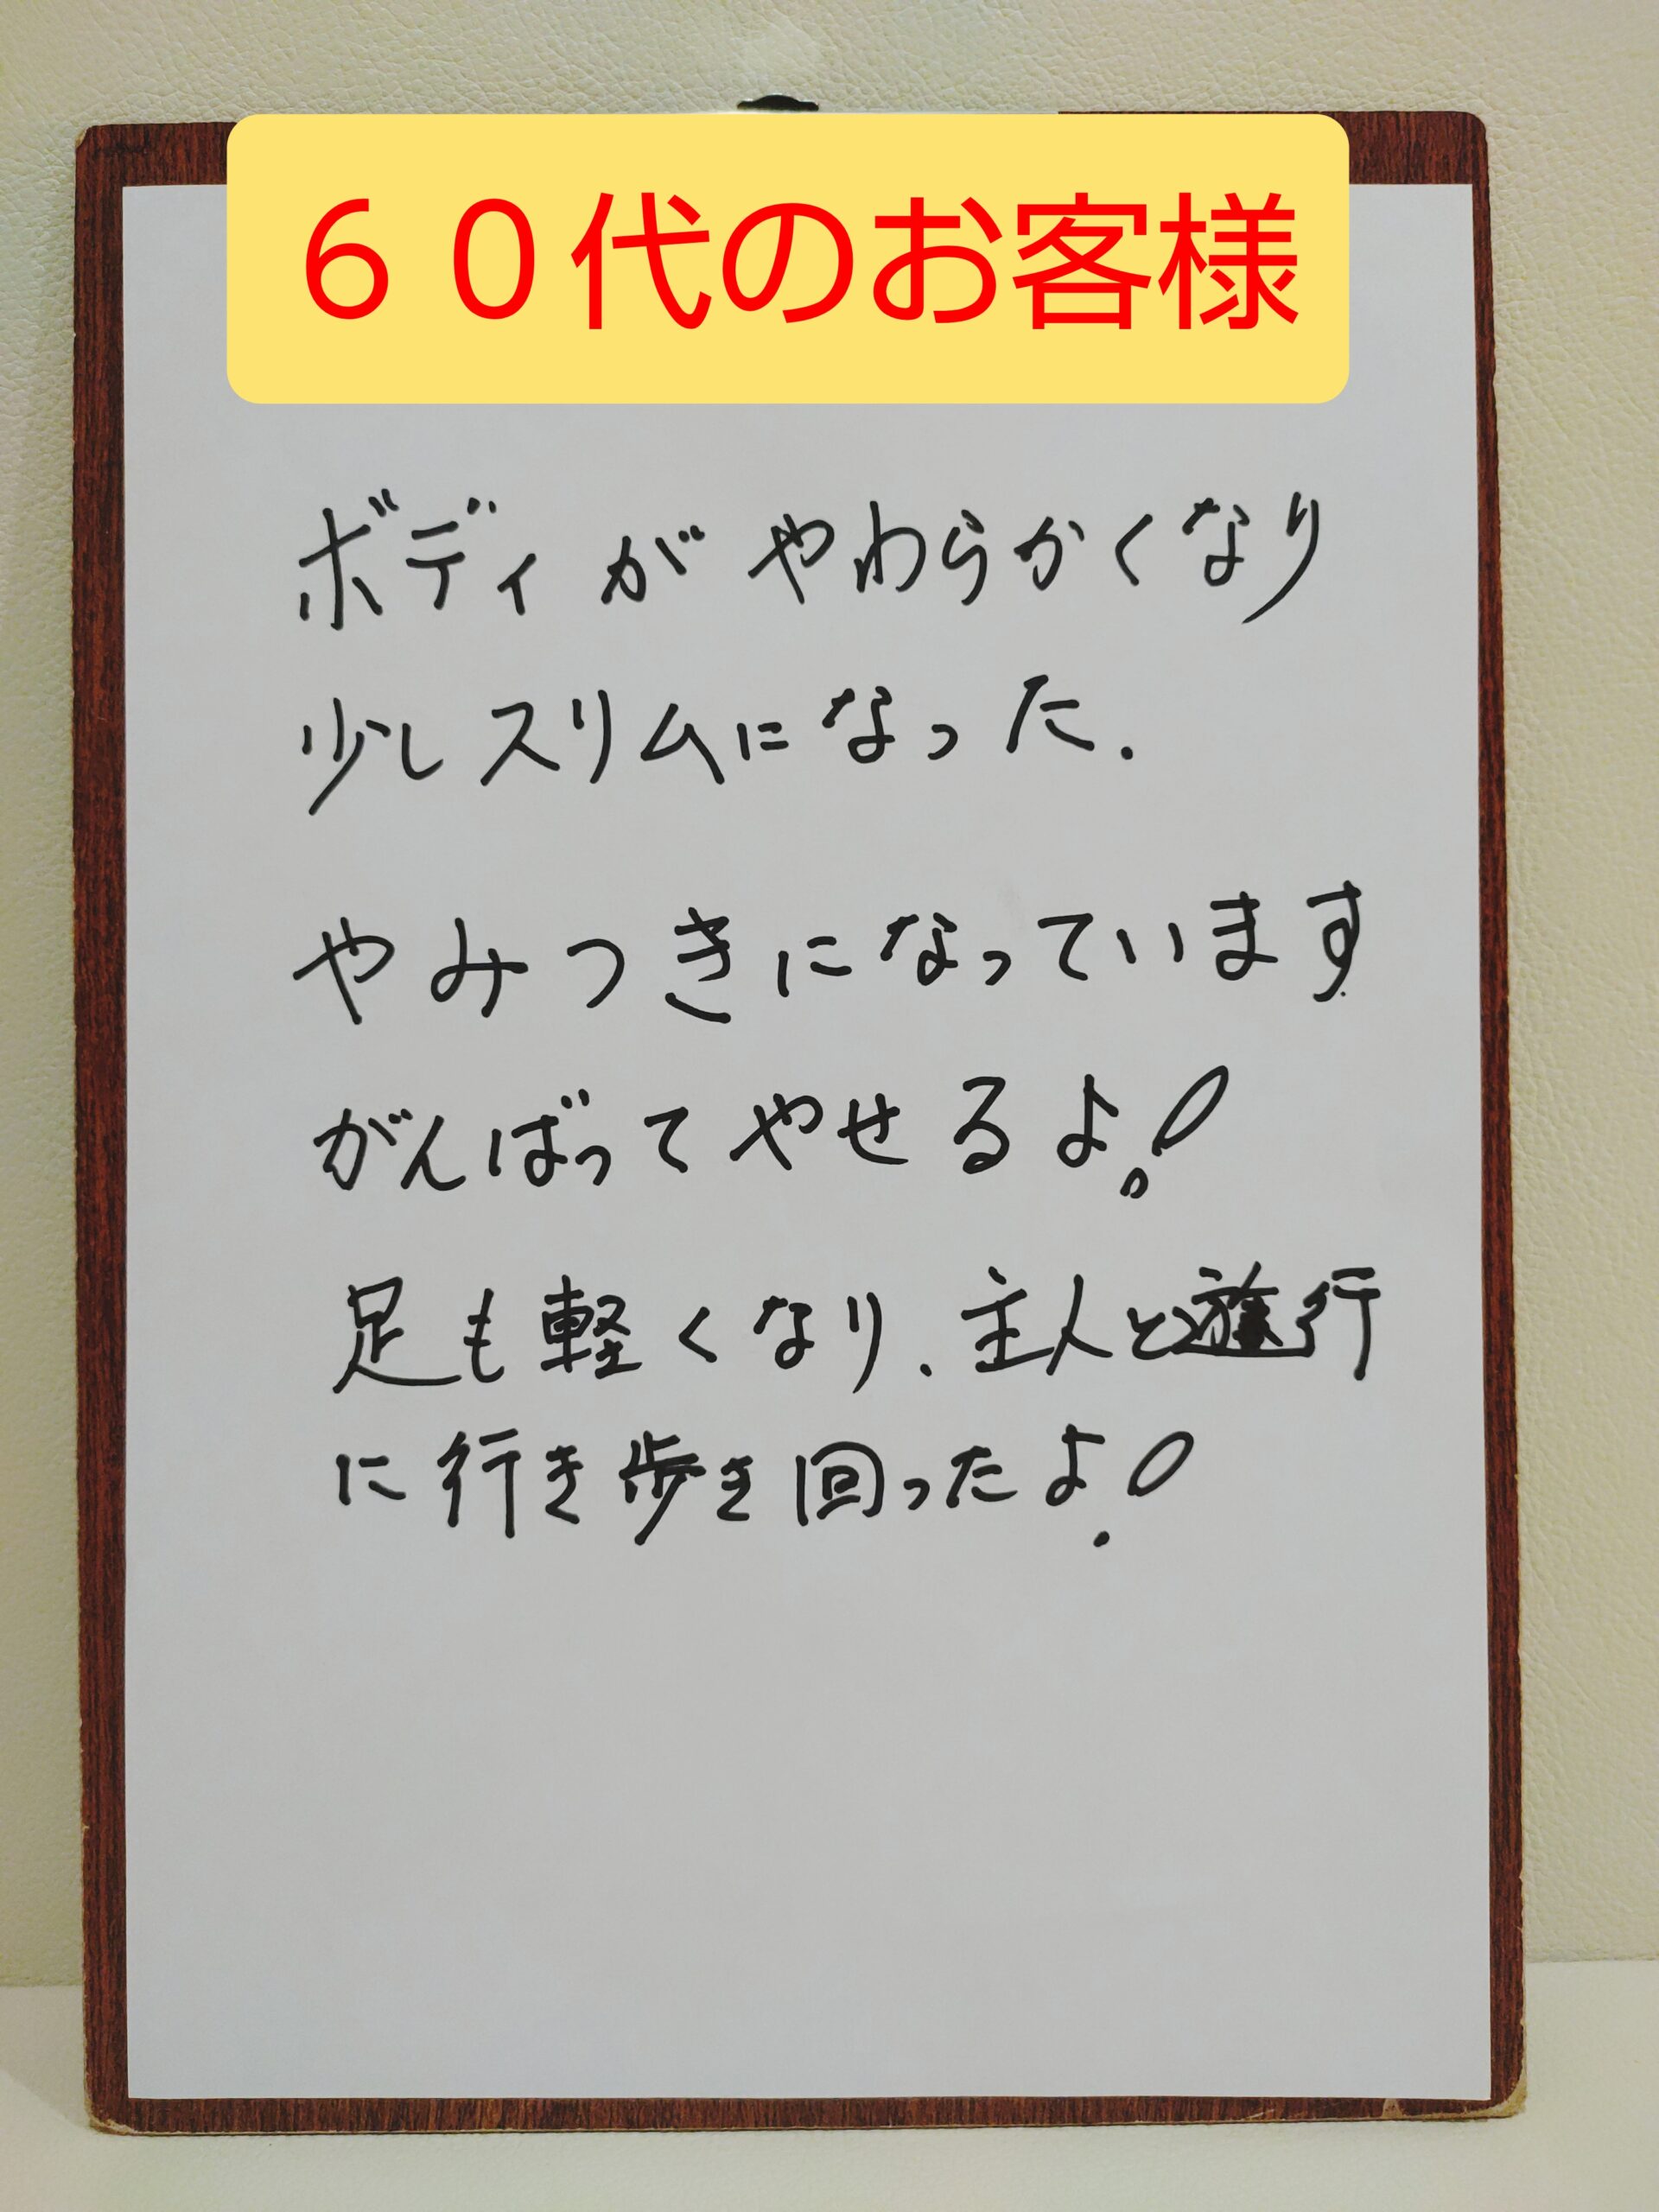 ６０代のお客様
ボディがやわらかくなり
少しスリムになった.
やみつきになっています
がんばってやせるよ!
足も軽くなり.主人と旅行
に行き歩き回ったよ!